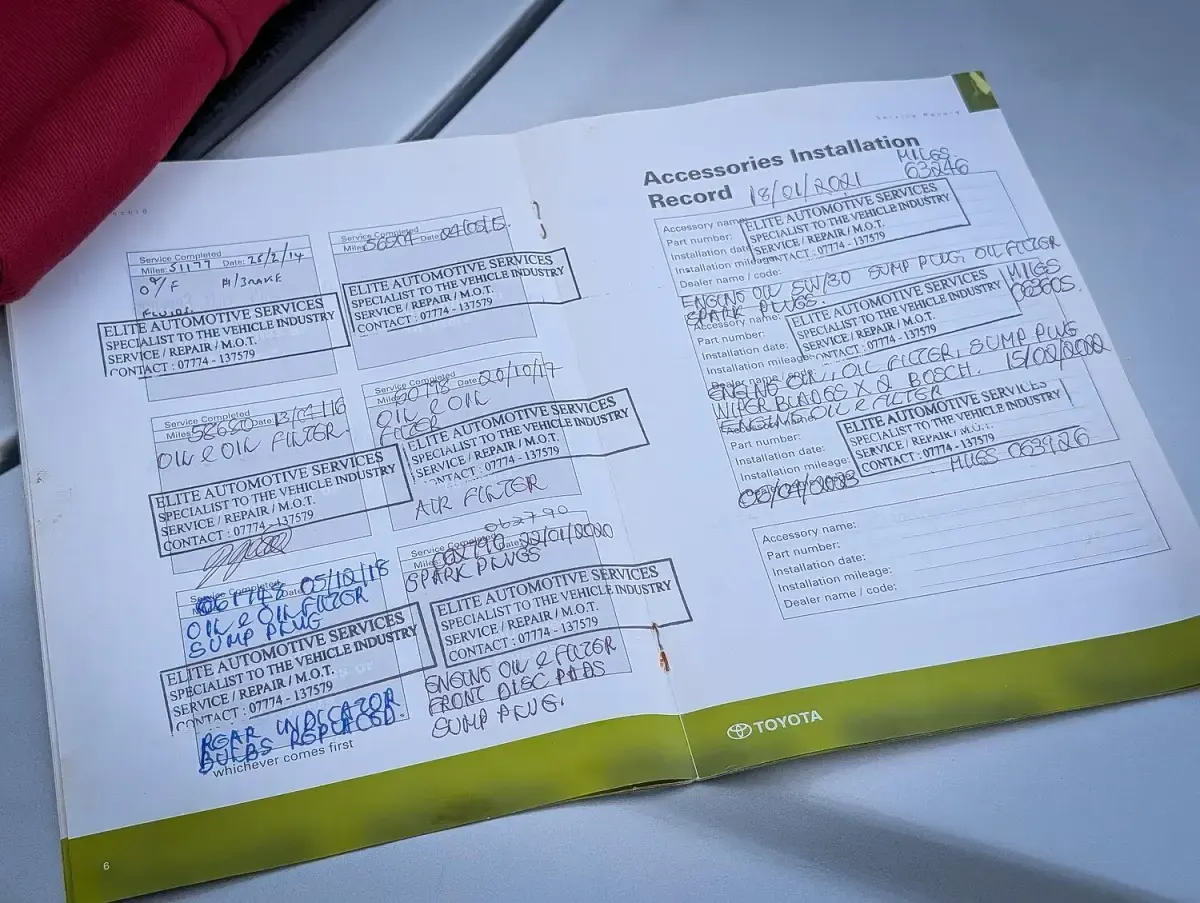 Service Completed
Miles: 51177 Date: 25/2/14
O/F
FLUIDS
ELITE AUTOMOTIVE SERVICES
SPECIALIST TO THE VEHICLE INDUSTRY
SERVICE / REPAIR / M.O.T.
CONTACT : 07774 - 137579
Service Completed
Miles: Date:
ELITE AUTOMOTIVE SERVICES
SPECIALIST TO THE VEHICLE INDUSTRY
SERVICE / REPAIR / M.O.T.
CONTACT : 07774 - 137579
Service Completed
Miles: 58680 Date: 13/04/16
OIL & OIL FILTER
ELITE AUTOMOTIVE SERVICES
SPECIALIST TO THE VEHICLE INDUSTRY
SERVICE / REPAIR / M.O.T.
CONTACT : 07774 - 137579
Service Completed
Miles: Date: 20/10/17
OIL & OIL
FILTER
ELITE AUTOMOTIVE SERVICES
SPECIALIST TO THE VEHICLE INDUSTRY
SERVICE / REPAIR / M.O.T.
CONTACT : 07774 - 137579
AIR FILTER
Service Completed
061748 05/12/18
OIL & OIL FILTER
SUMP PLUG
ELITE AUTOMOTIVE SERVICES
SPECIALIST TO THE VEHICLE INDUSTRY
SERVICE / REPAIR / M.O.T.
CONTACT : 07774 - 137579
REAR INDICATOR
BULBS REPLACED.
whichever comes first
062790
Service Completed
22/01/2020
SPARK PLUGS
ELITE AUTOMOTIVE SERVICES
SPECIALIST TO THE VEHICLE INDUSTRY
SERVICE / REPAIR / M.O.T.
CONTACT : 07774 - 137579
ENGINE OIL & FILTER
FRONT DISC PADS
SUMP PLUG.
6
Service Record
Accessories Installation
Record 18/01/2021 MILES
63246
Accessory name:
Part number:
Installation date:
Installation mileage:
Dealer name / code:
ELITE AUTOMOTIVE SERVICES
SPECIALIST TO THE VEHICLE INDUSTRY
SERVICE / REPAIR / M.O.T.
CONTACT : 07774 - 137579
ENGINE OIL 5W/30 SUMP PLUG OIL FILTER
SPARK PLUGS.
MILES
Accessory name:
Part number:
Installation date:
Installation mileage:
Dealer name / code:
ELITE AUTOMOTIVE SERVICES
SPECIALIST TO THE VEHICLE INDUSTRY
SERVICE / REPAIR / M.O.T.
CONTACT : 07774 - 137579
ENGINE OIL, OIL FILTER, SUMP PLUG
WIPER BLADES X 2 BOSCH. 15/02/2022
ENGINE OIL & FILTER
Part number:
Installation date:
Installation mileage:
ELITE AUTOMOTIVE SERVICES
SPECIALIST TO THE VEHICLE INDUSTRY
SERVICE / REPAIR / M.O.T.
CONTACT : 07774 - 137579
MILES
Accessory name:
Part number:
Installation date:
Installation mileage:
Dealer name / code:
TOYOTA